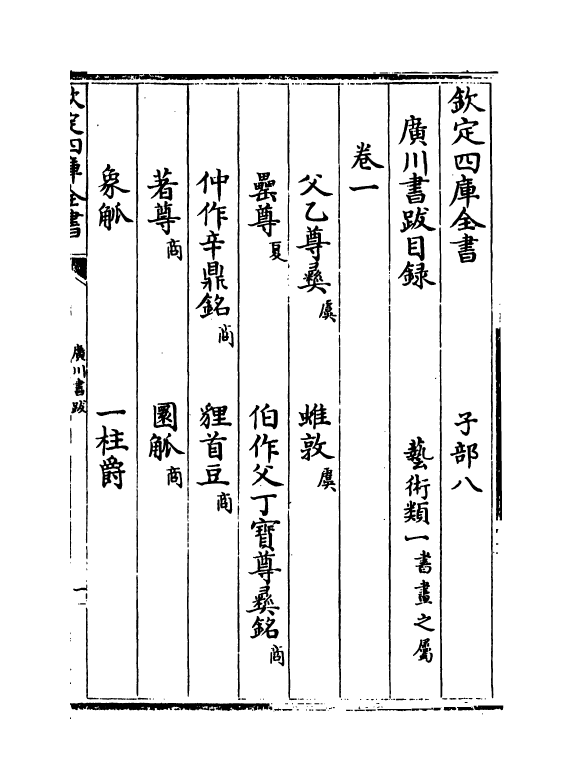 欽定四庫全書　子部八
廣川書跋目録　藝術類一書畫之屬
卷一
父乙尊彝虞　蜼敦虞
罍尊夏　伯作父丁寶尊彝銘商
仲作辛鼎銘商　狸首豆商
著尊商　圜觚商
象觚　一柱爵
欽定四庫全書　廣川書跋　一